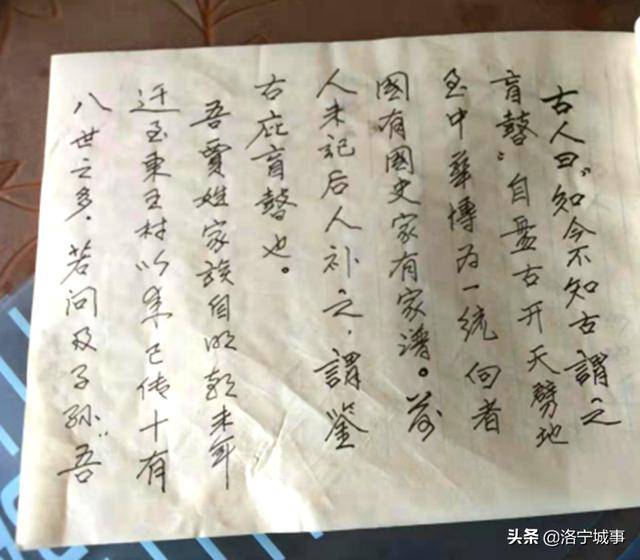 古人曰“知今不知古謂之
盲瞽”自盤古开天劈地
至中華博为一统向者
國有國史家有家谱。前
人未記后人补之，謂鉴
古庇盲瞽也。
吾賈姓家族自明朝末年
迁至東王村以来已传十有
八世之多，若问及子孙“吾
头条@洛宁城事